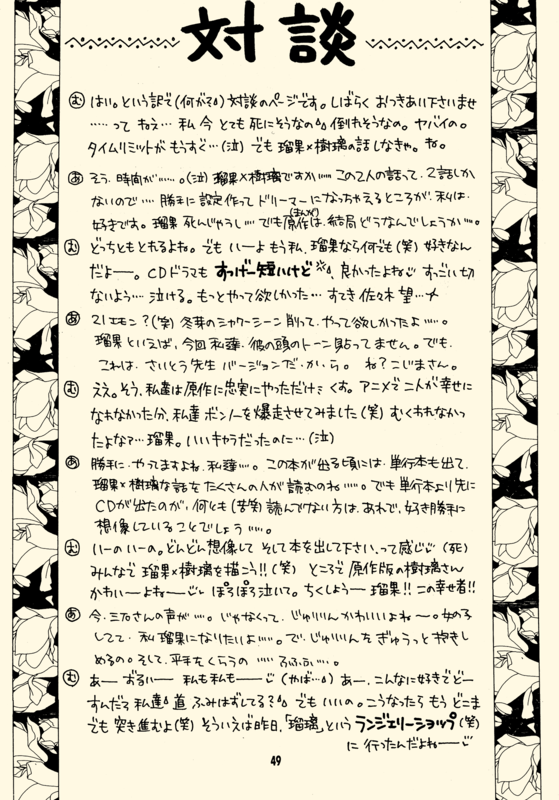 対談
む はい。という訳で(何がて)対談のページです。しばらくおつきあい下さいませ
……って ねぇ… 私今とても死にそうなの 倒れそうなの。ヤバイの。
タイムリミットがもうすぐ…(泣) でも瑠果×樹璃の話しなきゃ。ね。
あ そう、時間が……。(泣) 瑠果×樹璃ですか…… この2人の話って、2話しか
ないので… 勝手に設定作ってドリーマーになっちゃえるところが、私は
好きです。瑠果死んじゃうし… でも原作(まんが)は、結局どうなんでしょうか…。
む どっちともとれるよね。でも いーよ もう私、瑠果なら何でも(笑) 好きなん
だよー。CDドラマも すっげー短いけど 良かったよね すっごい切
ないよう… 泣ける。もっとやって欲しかった… すてき佐々木望…
あ 21エモン?(笑) 冬芽のシャワーシーン削って、やって欲しかったよ…。
瑠果といえば、今回私達、彼の頭のトーン貼ってません。でも、
これは、さいとう先生バージョンだ・か・ら。ね?こじまさん。
む ええ。そう、私達は原作に忠実にやっただけ くす。アニメで二人が幸せに
なれなかった分、私達ボンノーを爆走させてみました(笑) むくわれなかっ
たよな?…瑠果。いいキャラだったのに…(泣)
あ 勝手に、やってますよね、私達…。この本が出る頃には、単行本も出て、
瑠果×樹璃な話をたくさんの人が読むのね…。でも単行本より先に
CDが出たのが、何とも(苦笑) 読んでない方は、あれで、好き勝手に
想像していることでしょう…。
む いーの いーの。どんどん想像して そして本を出して下さい、って感じ (死)
みんなで瑠果×樹璃を描こう!!(笑) ところで原作版の樹璃さん
かわいーよねー ぽろぽろ泣いて。ちくしょうー瑠果!! この幸せ者!!
あ 今、三石さんの声が…。じゃなくって、じゅりりんかわいいよね〜。女の子
してて… 私瑠果になりたいよ…。で、じゅりりんをぎゅうっと抱きし
めるの。そして、平手をくらうの …… るふふ…。
む あー ずるいー 私も私もー (やば…) あー、こんなに好きでどー
すんだろ私達 道ふみはずしてる? でもいいの。こうなったらもうどこま
でも突き進むよ(笑) そういえば昨日、「瑠璃」という ランジェリーショップ(笑)
に行ったんだよねー
49